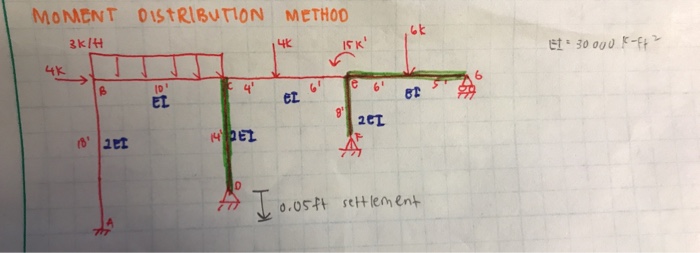 MOMENT DISTRIBUTION METHOD
3K/ft 4K 15K' 6K EI = 30 000 K-ft²
4K
B 10' C 4' 6' E 6' 5' G
EI EI EI
8' 2EI
18' 2EI 14' 2EI
F
D
0.05ft settlement
A